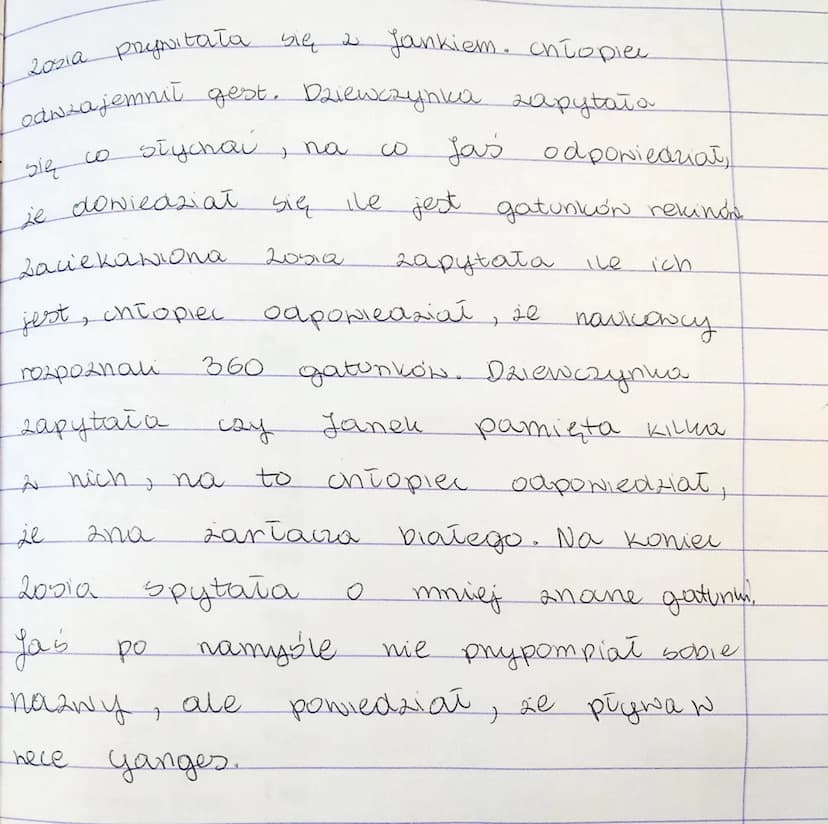 Zosia przywitała się z Jankiem. Chłopiec
odwzajemnił gest. Dziewczynka zapytała
się co słychać, na co Jaś odpowiedział,
że dowiedział się ile jest gatunków rekinów.
Zaciekawiona Zosia zapytała ile ich
jest, chłopiec odpowiedział, że naukowcy
rozpoznali 360 gatunków. Dziewczynka
zapytała czy Janek pamięta kilka
z nich, na to chłopiec odpowiedział,
że zna żarłacza białego. Na koniec
Zosia spytała o mniej znane gatunki.
Jaś po namyśle nie przypompiał sobie
nazwy, ale powiedział, że pływa w
rzece Yanges.